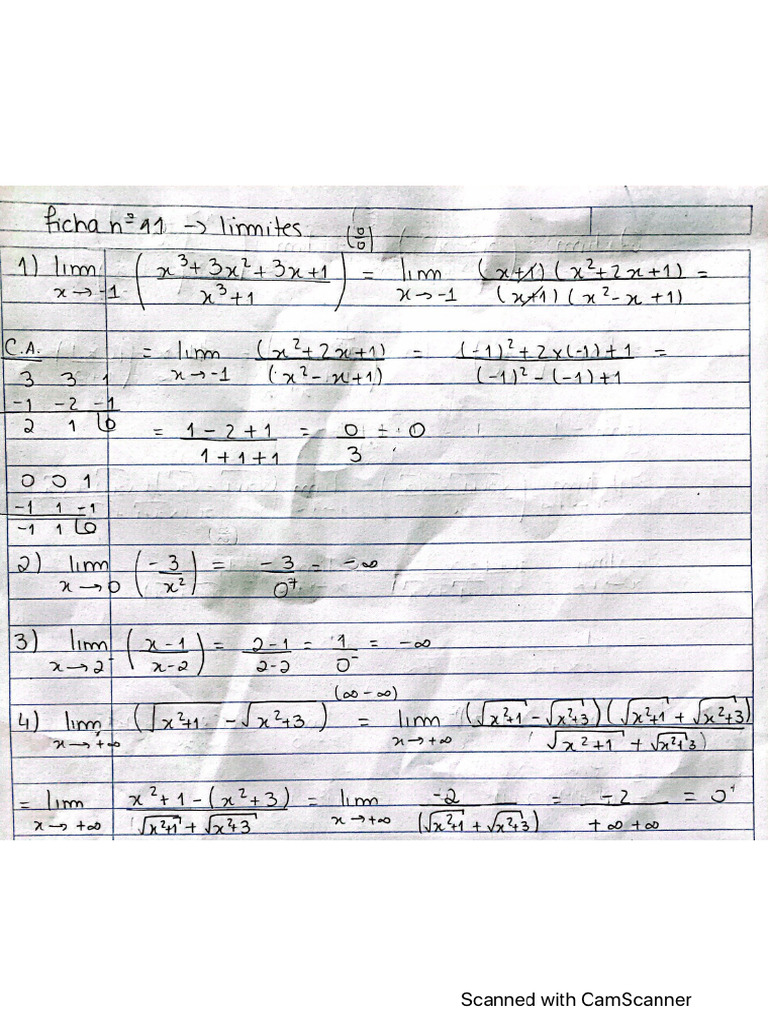 ficha nº 11 → limites
(0/0)
1) lim x→-1 (x³+3x²+3x+1 / x³+1) = lim x→-1 (x+1)(x²+2x+1) / (x+1)(x²-x+1) =
C.A.
= lim x→-1 (x²+2x+1) / (x²-x+1) = (-1)²+2×(-1)+1 / (-1)²-(-1)+1 =
3 3 1
-1 -2 -1
2 1 0
= 1-2+1 / 1+1+1 = 0/3 = 0
0 0 1
-1 1 -1
-1 1 0
2) lim x→0 (-3/x²) = -3/0⁺ = -∞
3) lim x→2⁻ (x-1 / x-2) = 2-1 / 2-2 = 1/0⁻ = -∞
(∞-∞)
4) lim x→+∞ (√x²+1 - √x²+3) = lim x→+∞ (√x²+1 - √x²+3)(√x²+1 + √x²+3) / √x²+1 + √x²+3)
= lim x→+∞ x²+1-(x²+3) / √x²+1 + √x²+3 = lim x→+∞ -2 / (√x²+1 + √x²+3) = -2 / +∞+∞ = 0
Scanned with CamScanner